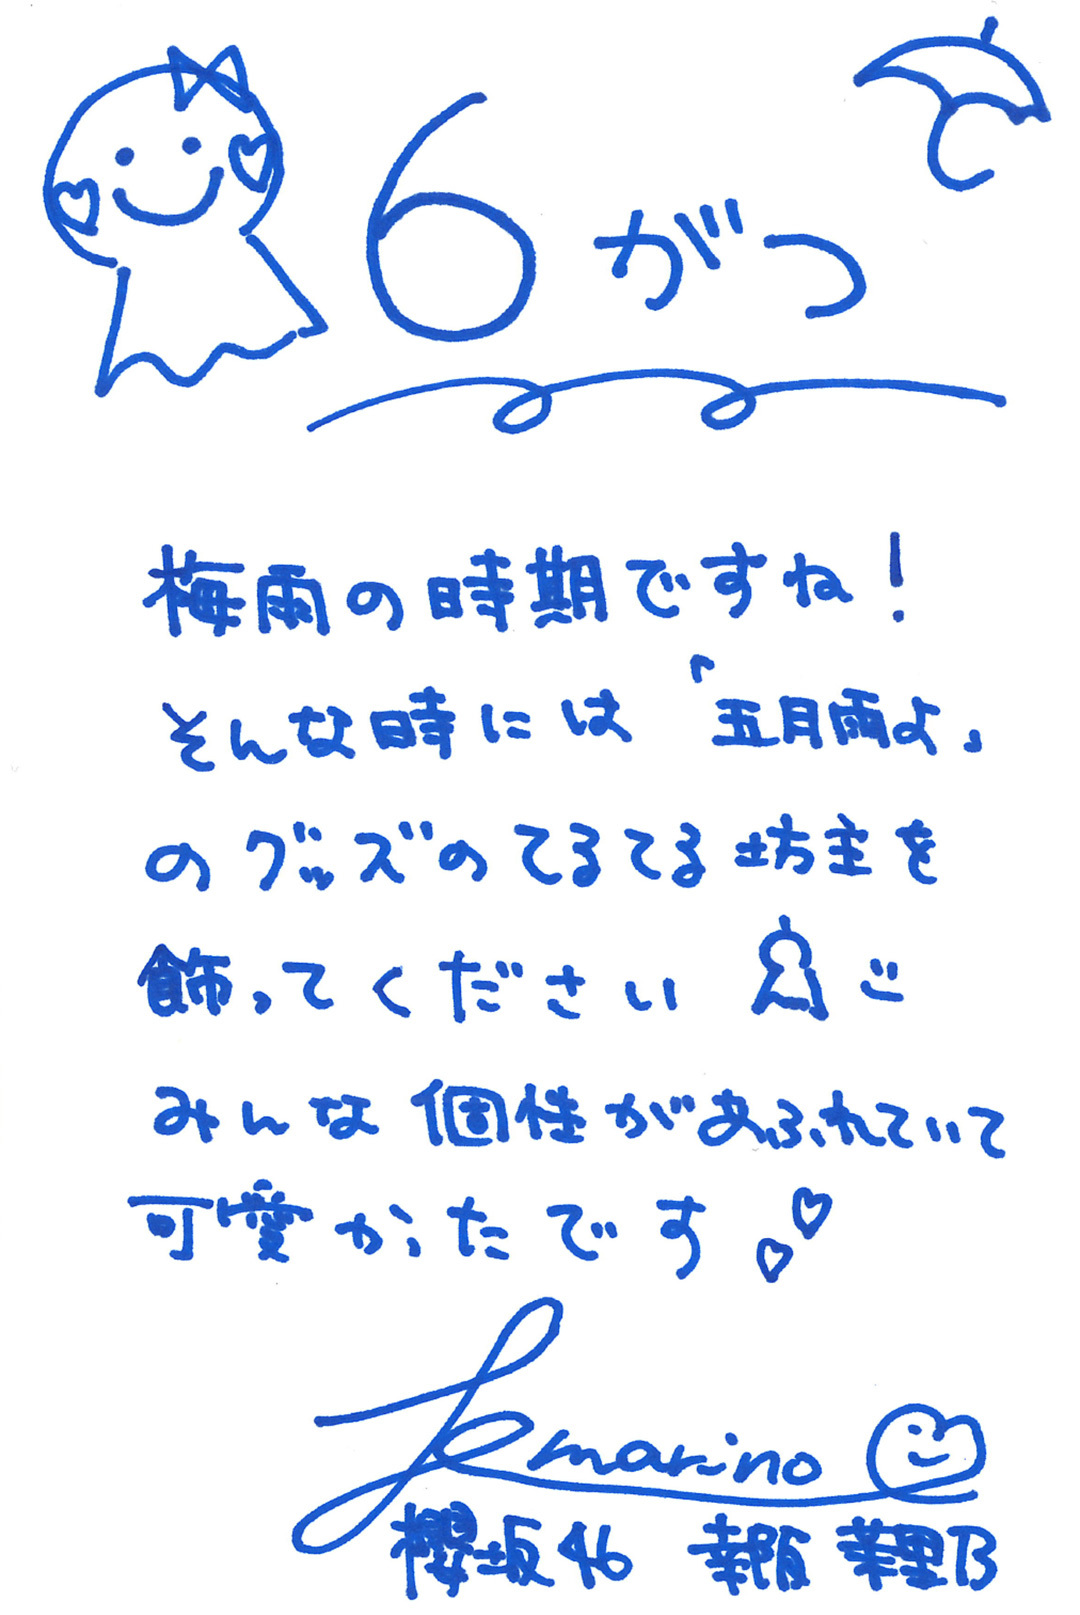 6がつ
梅雨の時期ですね!
そんな時には「五月雨よ」
のグッズのてるてる坊主を
飾ってください
みんな個性があふれていて
可愛かったです
marino
櫻坂46 幸阪 茉里乃